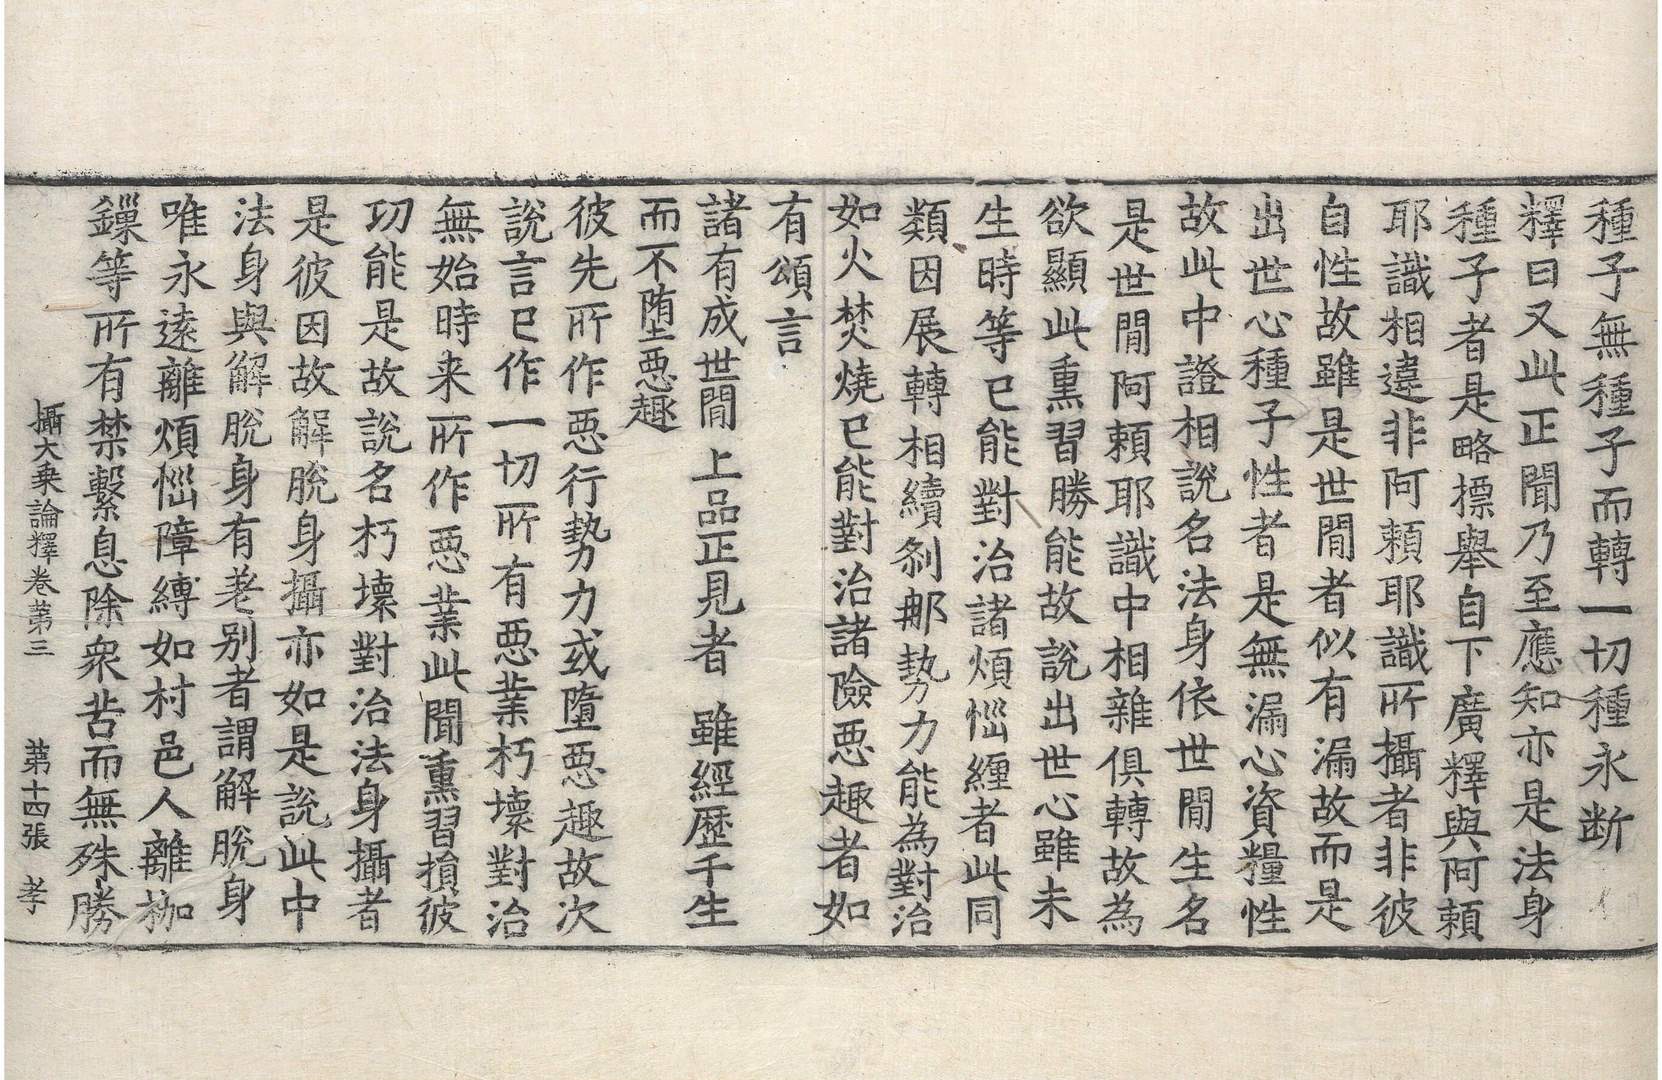 種子無種子而轉一切種永断
釋曰又此正聞乃至應知亦是法身
種子者是略摽舉自下廣釋與阿賴
耶識相違非阿賴耶識所攝者非彼
自性故雖是世間者似有漏故而是
出世心種子性者是無漏心資糧性
故此中證相說名法身依世間生名
是世間阿賴耶識中相雜俱轉故為
欲顯此熏習勝能故說出世心雖未
生時等已能對治諸煩惱纏者此同
類因展轉相續剎那勢力能為對治
如火焚燒已能對治諸險惡趣者如
有頌言
諸有成世間 上品正見者 雖經歷千生
而不墮惡趣
彼先所作惡行勢力或墮惡趣故次
說言已作一切所有惡業朽壞對治
無始時来所作惡業此聞熏習損彼
功能是故說名朽壞對治法身攝者
是彼因故解脫身攝亦如是說此中
法身與解脫身有差別者謂解脫身
唯永遠離煩惱障縛如村邑人離枷
鏁等所有禁繫息除衆苦而無殊勝
攝大乗論釋卷第三 第十四張 孝